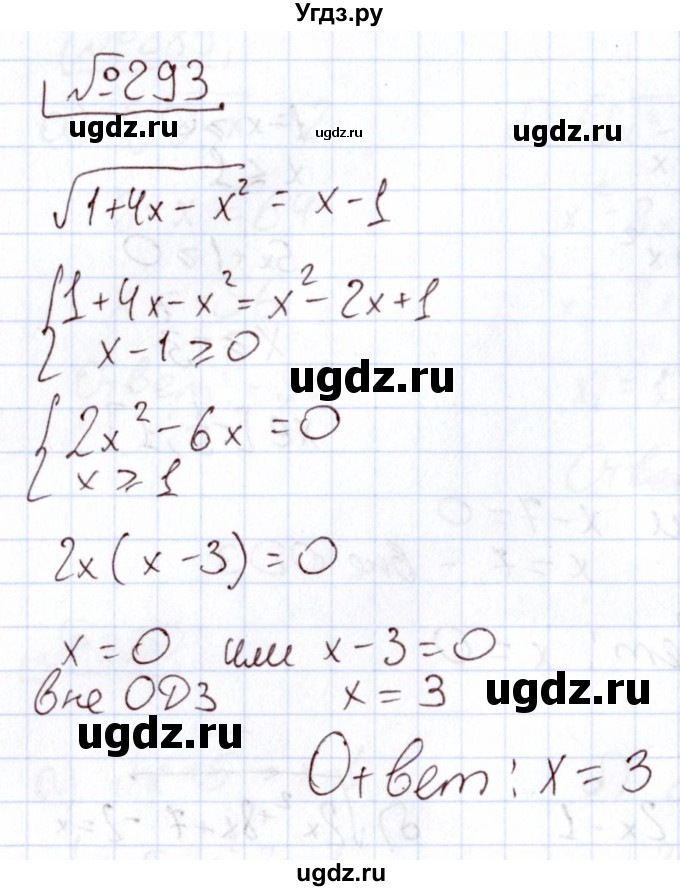 Угдз.ру
№293.
ugdz.ru ugdz.ru ugdz.ru
√(1+4x-x²) = x-1
{1+4x-x²=x²-2x+1
x-1⩾0
ugdz.ru
{2x²-6x=0
x⩾1
2x(x-3)=0
x=0 или x-3=0
вне ОДЗ x=3
ugdz.ru
ugdz.ru
Ответ: x=3
ugdz.ru